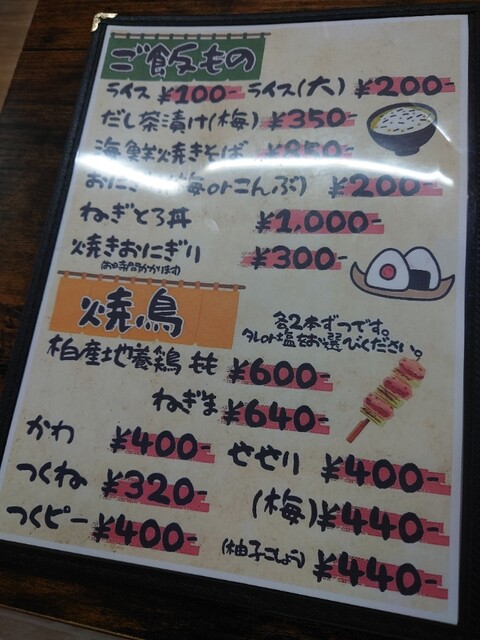 ご飯もの
ライス ¥100- ライス(大) ¥200-
だし茶漬け(梅) ¥350-
海鮮焼きそば ¥850-
おにぎり(梅orこんぶ) ¥200-
ねぎとろ丼 ¥1,000-
焼きおにぎり ¥300-
(お時間かかります)
焼鳥
各2本ずつです。
タレor塩をお選びください。
柏産地養鶏 もも ¥600-
ねぎま ¥640-
かわ ¥400- せせり ¥400-
つくね ¥320- (梅) ¥440-
つくピー ¥400- (柚子こしょう) ¥440-